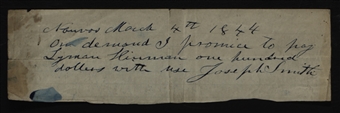 Nauvoo March 4th 1844
On demand I promice to pay
Lyman one hundred
dollars with use Joseph Smith